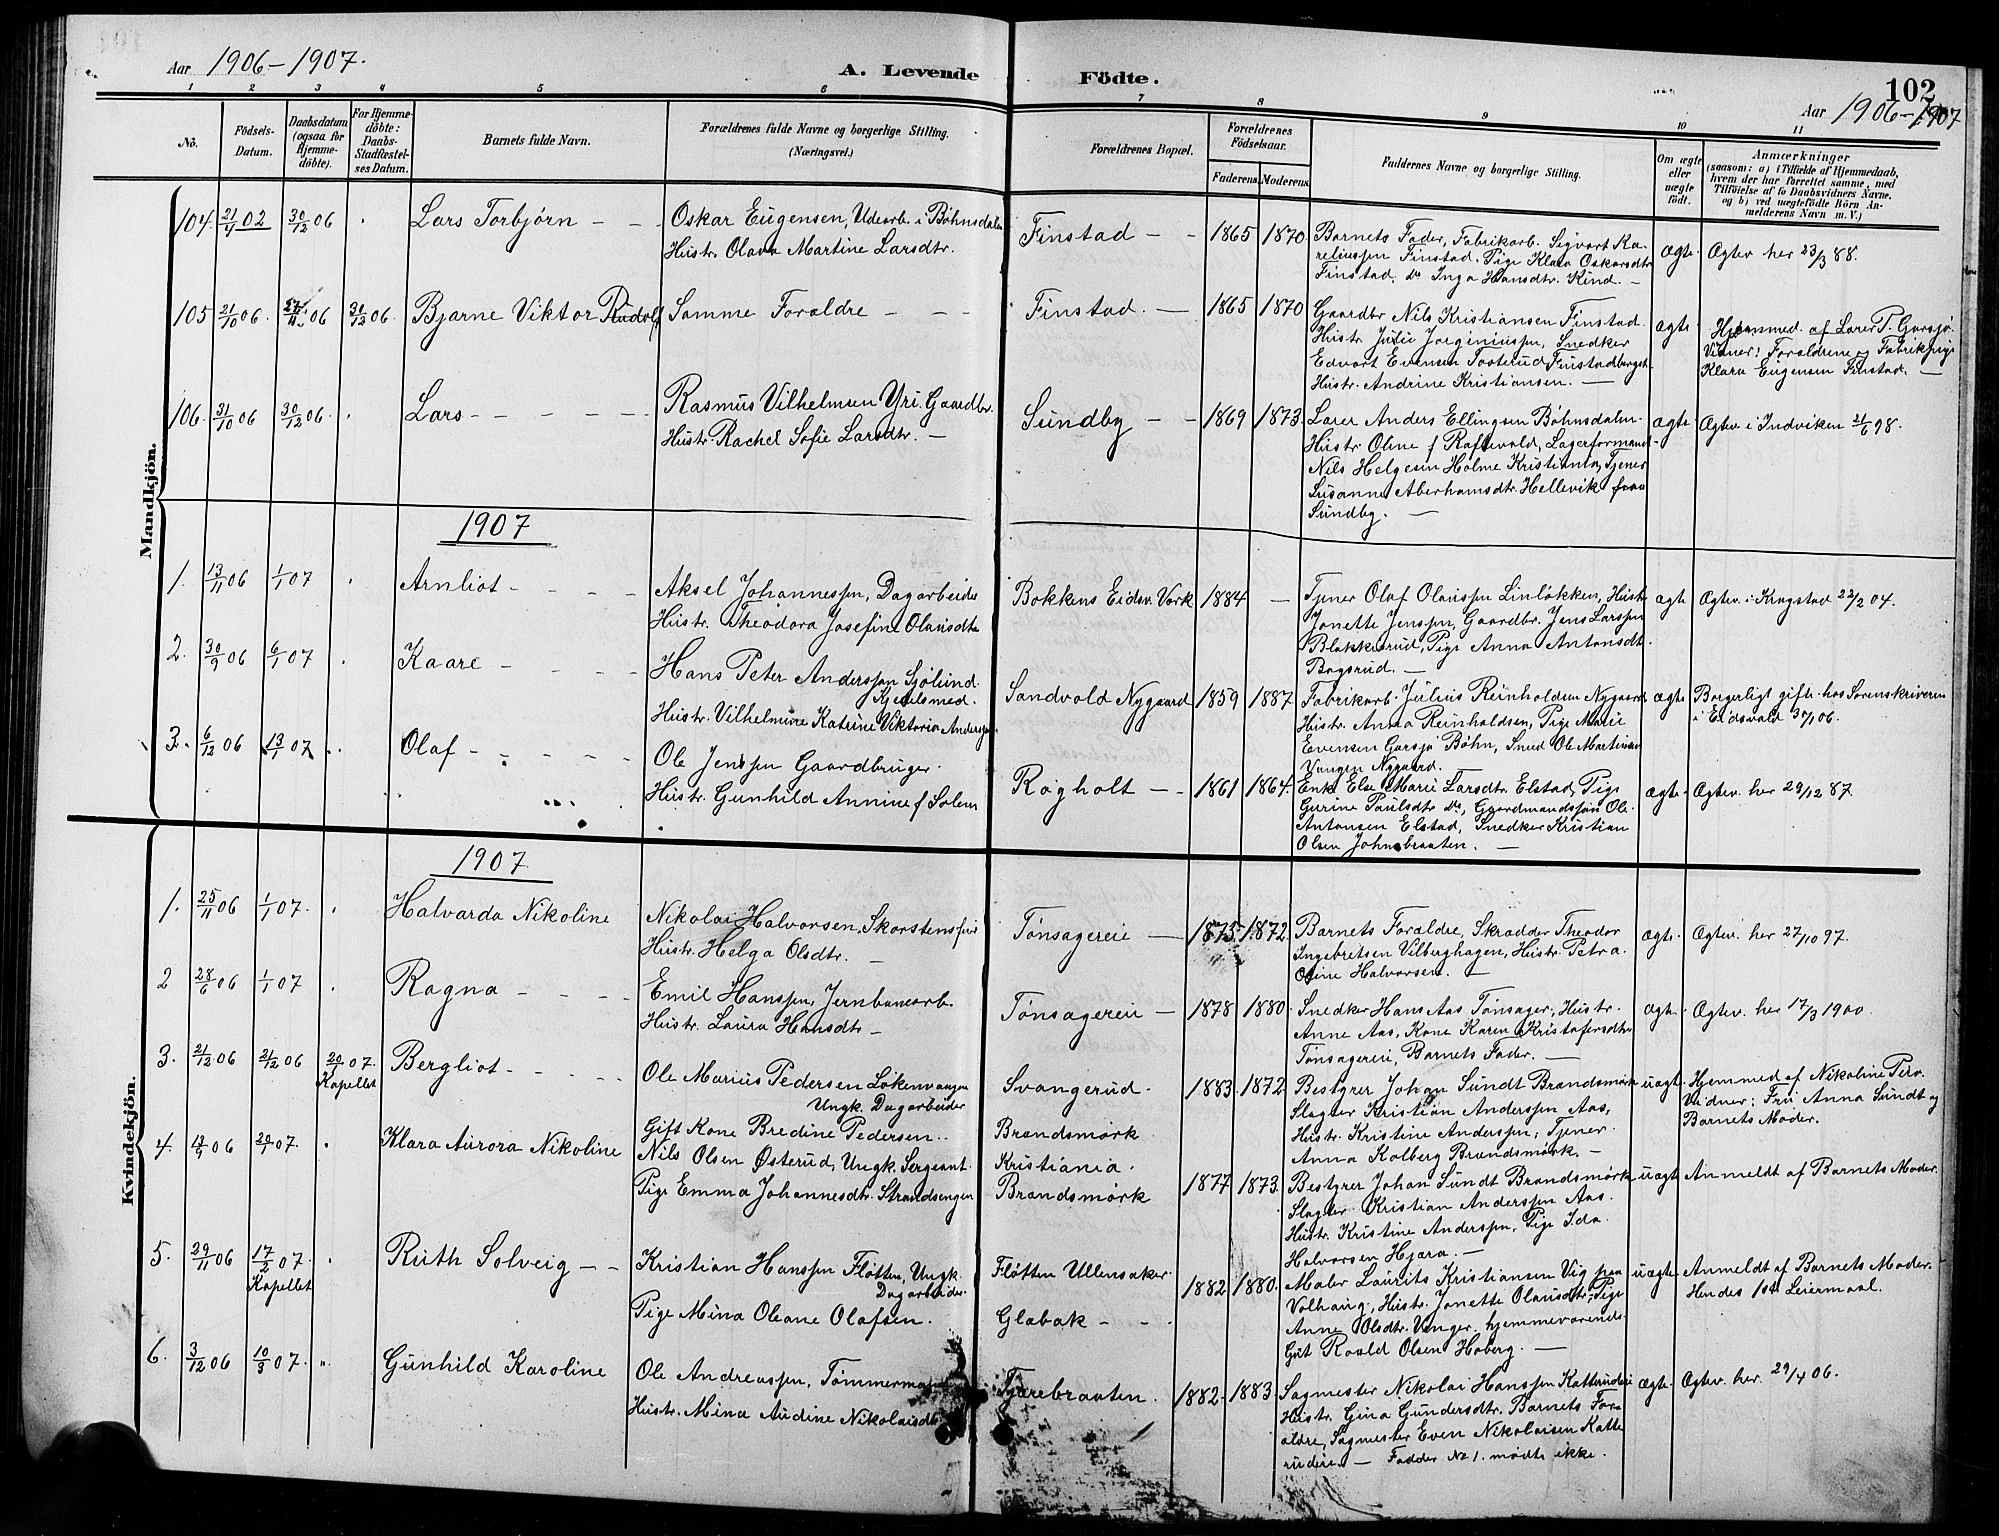 Aar 1906-1907.
A. Levende Födte.
102
Aar 1906-1907
1 2 3 4 5 6 7 8 9 10 11
No.
Födsels-
Datum.
Daabsdatum
(ogsaa for
Hjemme-
döbte).
For Hjemme-
döbte:
Daabs-
Stadfæstel-
ses Datum.
Barnets fulde Navn.
Forældrenes fulde Navne og borgerlige Stilling.
(Næringsvei.)
Forældrenes Bopæl.
Forældrenes
Födselsaar.
Faderens. Moderens.
Faddernes Navne og borgerlige Stilling.
Om ægte
eller
uægte
født.
Anmærkninger
(saasom: a) i Tilfælde af Hjemmedaab,
hvem der har forrettet samme, med
Tilföielse af to Daabsvidners Navne,
og b) ved uægtefödte Börn An-
melderens Navn m. V.)
Mandkjön.
104. 21/4 02 30/12 06 Lars Torbjørn - -
Oskar Eugensen, Udearb. i Bøhnsdalen
Hustr. Olava Martine Larsdtr.
Finstad - - 1865 1870
Barnets Fader, Fabrikarb. Sigvart Ka-
reliussen Finstad. Pige Klara Oskarsdtr
Finstad, do Inga Hansdtr. Kind. -
Ægte. Ægtev. her 23/3 88.
105 21/10 06. 27/11 06 30/12 06. Bjarne Viktor Rudolf
Samme Forældre - - -
Finstad. - 1865 1870
Gaardbr Nils Kristiansen Finstad.
Hustr Julie Jorginiussen, Snedker
Edvart Evensen Tosterud Finstadberget
Hustr. Andrine Kristiansen. -
ægte.
Hjemmed. af Lærer P. Garsjø.
Vidner: Forældrene og Fabrikpige
Klara Eugensen Finstad. -
106. 31/10 06 30/12 06. Lars - - - - -
Rasmus Vilhelmsen Yri. Gaardbr.
Hustr. Rachel Sofie Larsdtr. -
Sundby - - 1869 1873.
Lærer Anders Ellingsen Bøhnsdalen
Hustr. Oline f Raftevold, Lagerformand
Nils Helgesen Holme Kristiania, Tjener
Susanne Aberhamsdtr. Hellevik fraa
Sundby. -
ægte. Ægtev. i Indviken 21/6 98.
1907
1. 13/11 06 1/1 07 Arnliot - - - -
Aksel Johannessen, Dagarbeider
Hustr. Theodora Josefine Olausdtr
Bokkens Eidsv. Verk 1884 -
Tjener Olaf Olaussen Linløkken, Hustr
Jonette Jenssen, Gaardbr. Jens Larssen
Blakkesrud, Pige Anna Antonsdt.
Bogsrud. -
ægte Ægtev. i Kragstad 22/2 04.
2. 30/9 06 6/1 07 Kaare - - -
Hans Peter Anderssen Sjølund.
Kjedelsmed.
Hustr. Vilhelmine Katrine Viktoria Anderssen
Sandvold Nygaard 1859 1887
Fabrikarb. Julius Reinholdsen Nygaard
Hustr. Anna Reinholdsen, Pige Marie
Evensen Garsjø Bøhn, Smed Ole Martinsen
Vangen Nygaard.
ægte Borgerligt gifte hos Sorenskriveren
i Eidsvold 30/1 06.
3. 6/12 06 13/1 07 Olaf - - - -
Ole Jenssen Gaardbruger.
Hustr. Gunhild Annine f Solem
Røgholt - - 1861 1864.
Enk. Else Marie Larsdtr. Elstad, Pige
Gurine Paulsdtr do, Gaardmandssøn Ole
Antonsen Elstad, Snedker Kristian
Olsen Johnsbraaten. -
ægte Ægtev. her 29/12 87.
Kvindekjön.
1907.
1. 25/11 06 1/1 07. Halvarda Nikoline
Nikolai Halvorsen, Skorstensfeier
Hustr. Helga Olsdtr. -
Tønsagereie - 1875 1872.
Barnets Forældre, Skrædder Theodor
Ingebretsen Vilberghagen, Hustr. Petra
Oline Halvorsen. -
ægte. Ægtev. her 27/10 97.
2 28/6 06 1/1 07 Ragna - - - -
Emil Hanssen, Jernbanearb.
Hustr. Laura Hansdtr -
Tønsagereie - 1878 1880.
Snedker Hans Aas Tønsager, Hustr.
Anne Aas, Kone Karen Kristofersdtr
Tønsagereie, Barnets Fader. -
ægte. Ægtev. her 17/3 1900.
3. 2/12 06 21/12 06 20/1 07.
Kapellet
Bergliot - - - -
Ole Marius Pedersen Løkenvangen
Ungk. Dagarbeider
Gift Kone Bredine Pedersen.
Svangerud. 1883. 1872.
Brandsmørk
Bestyrer Johan Sundt Brandsmørk
Slagter Kristian Anderssen Aas,
Hustr. Kristine Anderssen, Tjener
Anna Kolberg Brandsmørk. -
uægte Hjemmed af Nikoline
Vidner: Fru Anna Sundt og
Barnets Moder.
4. 06 20/1 07. Klara Aurora Nikoline
Nils Olsen Østerud, Ungk. Sergeant.
Pige Emma Johannesdtr. Strandsengen
Kristiania.
Brandsmørk 1877 1873.
Bestyrer Johan Sundt Brandsmørk
Slagter Kristian Anderssen Aas.
Hustr. Kristine Anderssen, Pige Ida
Halvorsen Hjera. -
uægte Anmeldt af Barnets Moder.
5. 29/11 06 17/2 07.
Kapellet
Ruth Solveig - -
Kristian Hanssen Fløtten, Ungk.
Dagarbeider.
Pige Mina Oleane Olafsen.
Fløtten Ullensaker
Glabak - - 1882 1880.
Maler Laurits Kristiansen Vig paa
Volhaug, Hustr. Jonette Olausdtr, Pige
Anne Olsdtr. Venger, hjemmeværende
Gut Roald Olsen Hoberg. -
uægte Anmeldt af Barnets Moder.
Hendes 1ste Leiermaal.
6. 3/12 06 10/3 07. Gunhild Karoline
Ole Andreassen, Tømmermand
Hustr. Mina Audine Nikolaisdtr
Tjærebraaten. 1882. 1883.
Sagmester Nikolai Hanssen Katterudeie
Hustr. Gina Gundersdtr. Barnets For-
ældre, Sagmester Even Nikolaisen Katte
rudeie. - Fadder No 1. mødte ikke.
ægte. Ægtev. her. 29/4 06.